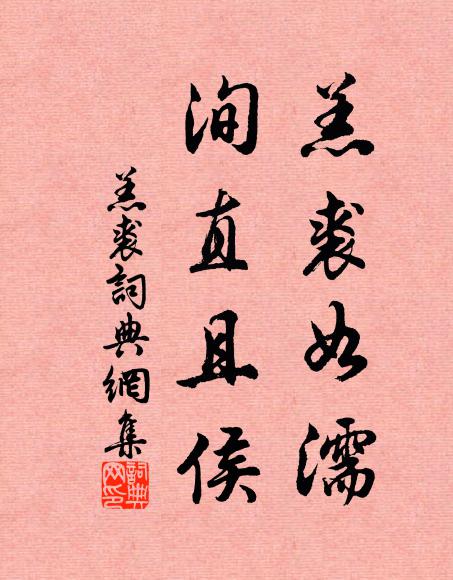 羔裘如濡
洵直且侯
羔裘詞典網集
詞典網印